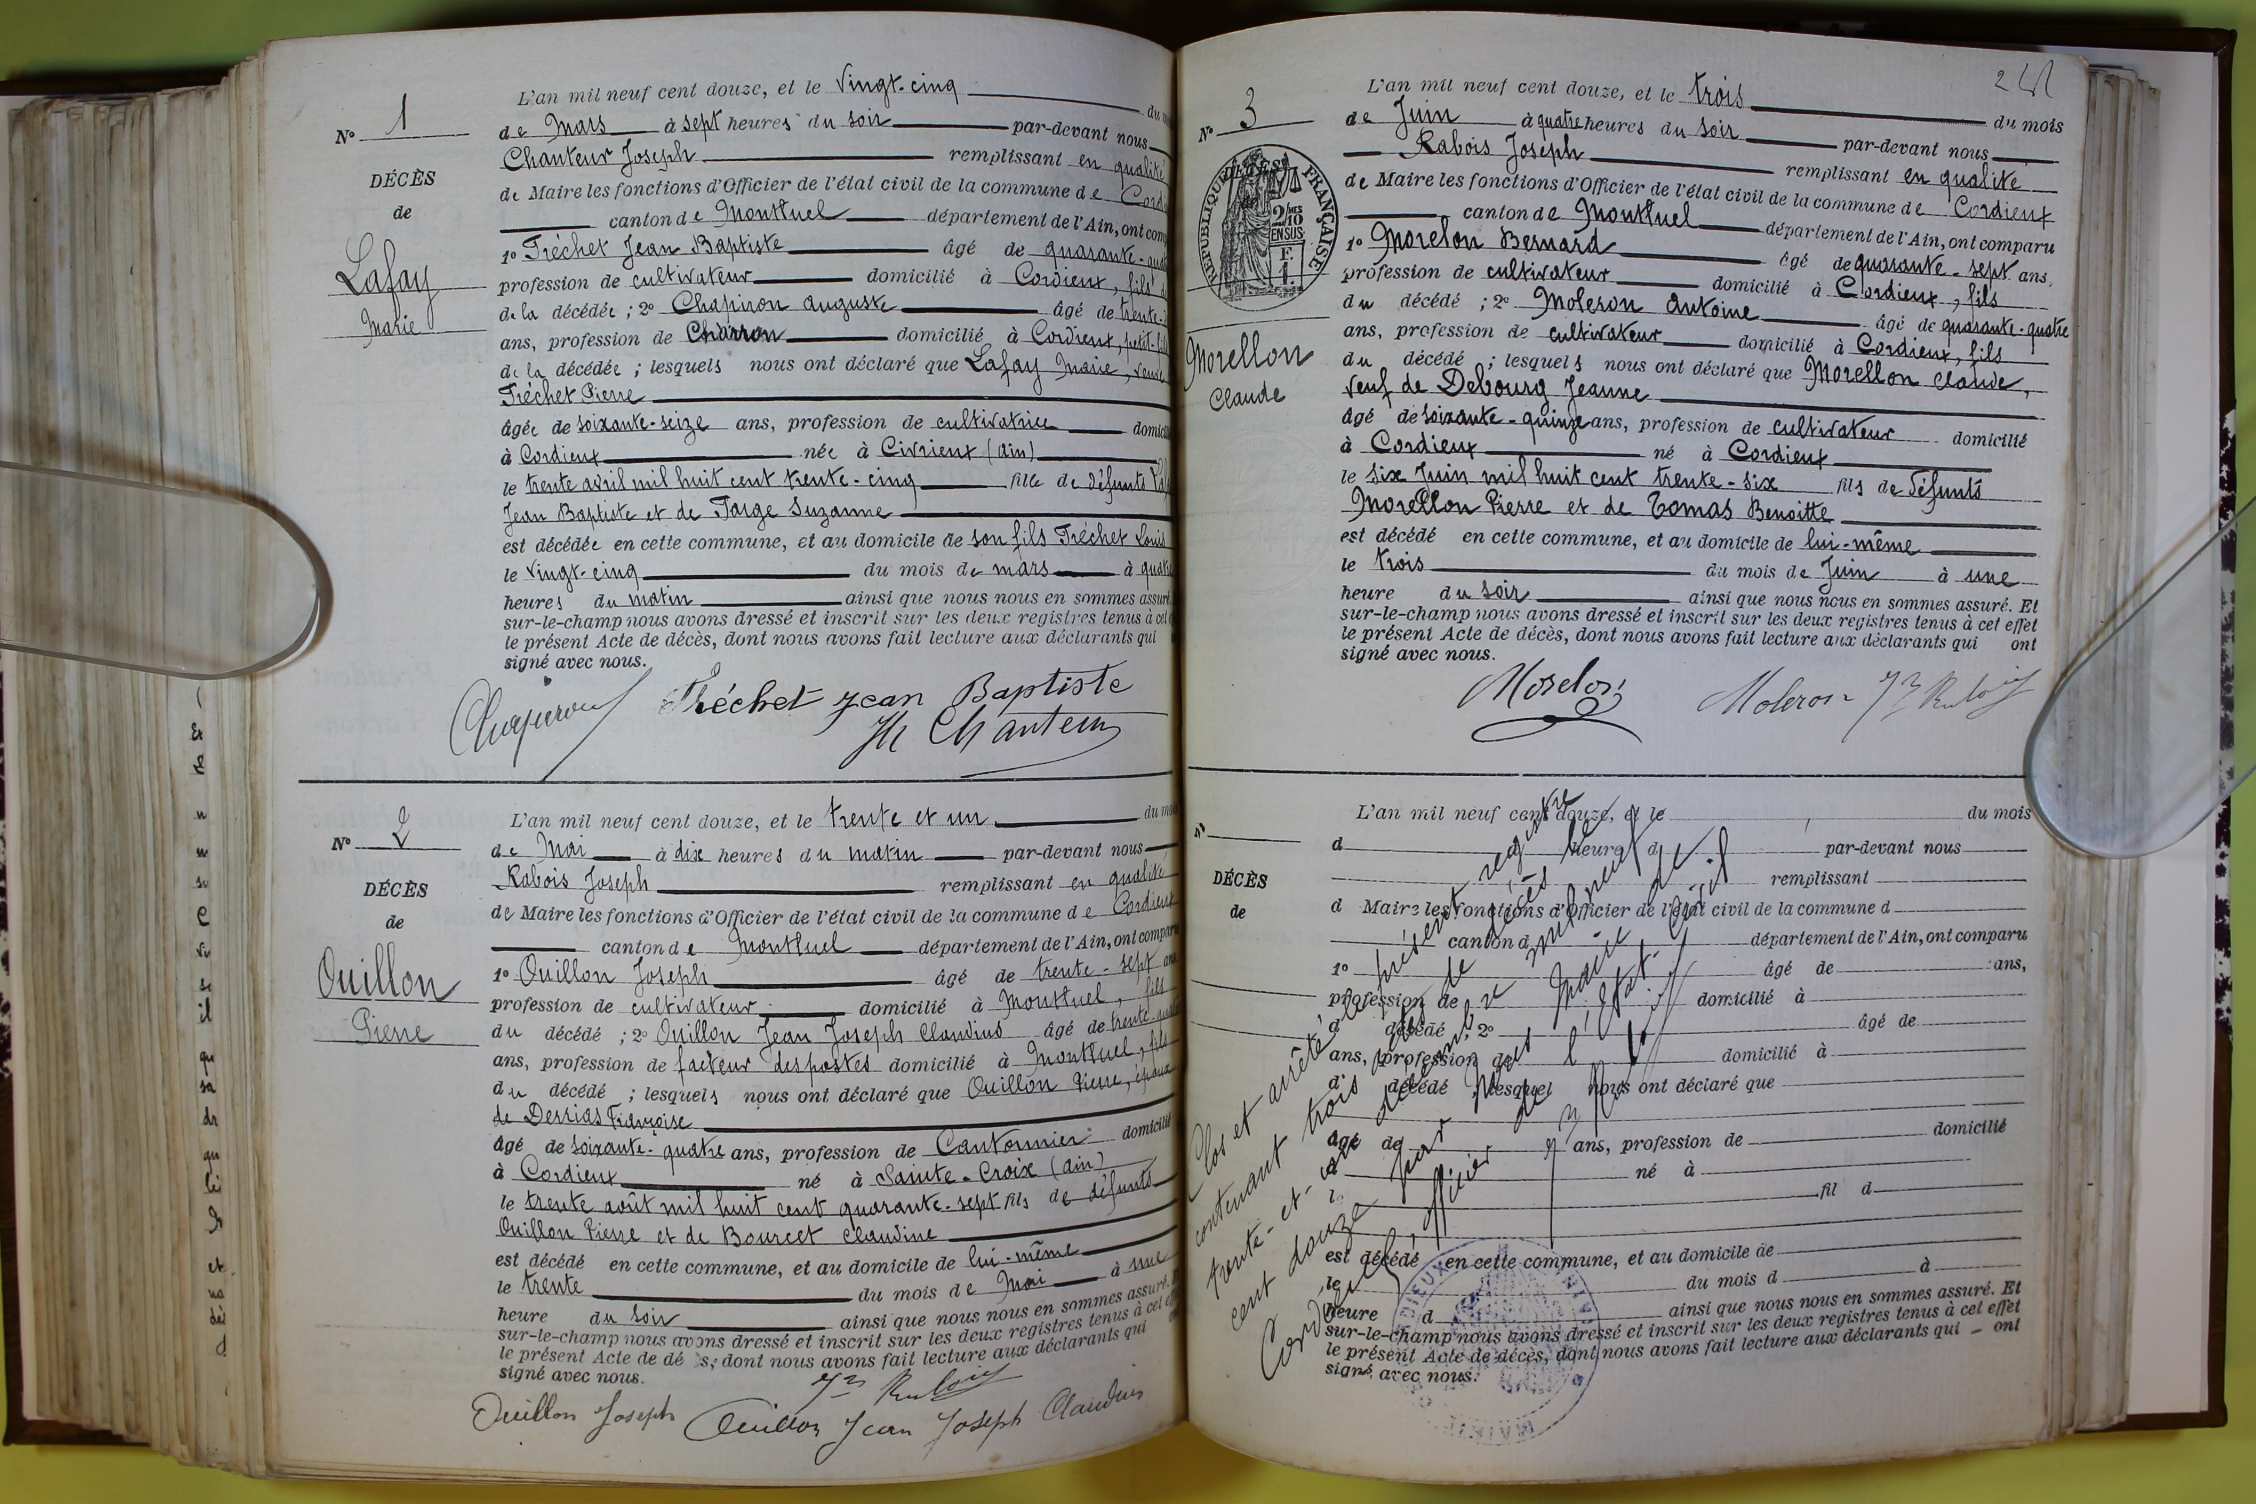 L'an mil neuf cent douze, et le Vingt-cinq du
N° 1
de Mars à sept heures du soir par-devant nous
Chanteur Joseph remplissant en qualité
DÉCÈS
de Maire les fonctions d'Officier de l'état civil de la commune de
de
canton de Montluel département de l'Ain, ont
Lafay
Marie
1° Tréchet Jean Baptiste âgé de quarante-
profession de cultivateur domicilié à Cordieux, fils
de la décédée ; 2° Chapiron Auguste âgé de trente-
ans, profession de Charron domicilié à Cordieux, petit-fils
de la décédée ; lesquels nous ont déclaré que Lafay Marie, veuve
Tréchet Pierre
âgée de soixante-seize ans, profession de cultivatrice
à Cordieux née à Civrieux (Ain)
le trente avril mil huit cent trente-cinq fille de défunts
Jean Baptiste et de Farge Suzanne
est décédée en cette commune, et au domicile de son fils Tréchet Louis
le vingt-cinq du mois de mars à quatre
heures du matin ainsi que nous nous en sommes assuré.
sur-le-champ nous avons dressé et inscrit sur les deux registres tenus à cet
le présent Acte de décès, dont nous avons fait lecture aux déclarants qui
signé avec nous.
Chapiron Tréchet Jean Baptiste
Jh Chanteur
L'an mil neuf cent douze, et le trente et un du
N° 2
de Mai à dix heures du matin par-devant nous
Rabois Joseph remplissant en qualité
DÉCÈS
de Maire les fonctions d'Officier de l'état civil de la commune de Cordieux
de
canton de Montluel département de l'Ain, ont comparu
Ouillon
Pierre
1° Ouillon Joseph âgé de trente-sept ans
profession de cultivateur domicilié à Montluel, fils
du décédé ; 2° Ouillon Jean Joseph Claudius âgé de trente-
ans, profession de facteur des postes domicilié à Montluel, fils
du décédé ; lesquels nous ont déclaré que Ouillon Pierre, époux
de Desrias Françoise
âgé de soixante-quatre ans, profession de Cantonnier domicilié
à Cordieux né à Sainte-Croix (Ain)
le trente août mil huit cent quarante-sept fils de défunts
Ouillon Pierre et de Bourcet Claudine
est décédé en cette commune, et au domicile de lui-même
le trente du mois de Mai à une
heure du soir ainsi que nous nous en sommes assuré.
sur-le-champ nous avons dressé et inscrit sur les deux registres tenus à cet
le présent Acte de dé s, dont nous avons fait lecture aux déclarants qui
signé avec nous.
Jh Rabois
Ouillon Joseph Ouillon Jean Joseph Claudius
L'an mil neuf cent douze, et le trois du mois
N° 3
de Juin à quatre heures du soir par-devant nous
Rabois Joseph remplissant en qualité
de Maire les fonctions d'Officier de l'état civil de la commune de Cordieux
canton de Montluel département de l'Ain, ont comparu
RÉPUBLIQUE FRANÇAISE
2/10 MES
EN SUS
F.
1.
Morellon
Claude
1° Morelon Bernard âgé de quarante-sept ans,
profession de cultivateur domicilié à Cordieux, fils
du décédé ; 2° Moleron Antoine âgé de quarante-quatre
ans, profession de cultivateur domicilié à Cordieux, fils
du décédé ; lesquels nous ont déclaré que Morellon Claude,
veuf de Debourg Jeanne
âgé de soixante-quinze ans, profession de cultivateur domicilié
à Cordieux né à Cordieux
le six Juin mil huit cent trente-six fils de défunts
Morellon Pierre et de Tomas Benoitte
est décédé en cette commune, et au domicile de lui-même
le trois du mois de Juin à une
heure du soir ainsi que nous nous en sommes assuré. Et
sur-le-champ nous avons dressé et inscrit sur les deux registres tenus à cet effet
le présent Acte de décès, dont nous avons fait lecture aux déclarants qui ont
signé avec nous.
Morelon Moleron Jh Rabois
L'an mil neuf cent douze, et le du mois
d heure d par-devant nous
remplissant
DÉCÈS
d Maire les fonctions d'Officier de l'état civil de la commune d
de
canton d département de l'Ain, ont comparu
1° âgé de ans,
profession de domicilié à
d décédé ; 2° âgé de
ans, profession de domicilié à
d décédé ; lesquel nous ont déclaré que
âgé de ans, profession de domicilié
à né à
le fil d
est décédé en cette commune, et au domicile de
le du mois d à
heure d ainsi que nous nous en sommes assuré. Et
sur-le-champ nous avons dressé et inscrit sur les deux registres tenus à cet effet
le présent Acte de décès, dont nous avons fait lecture aux déclarants qui ont
signé avec nous.
Clos et arrêté le présent registre
contenant trois actes de décès le
trente-et-un décembre mil neuf
cent douze par nous Maire de
Cordieux, officier de l'État-civil
Jh Rabois